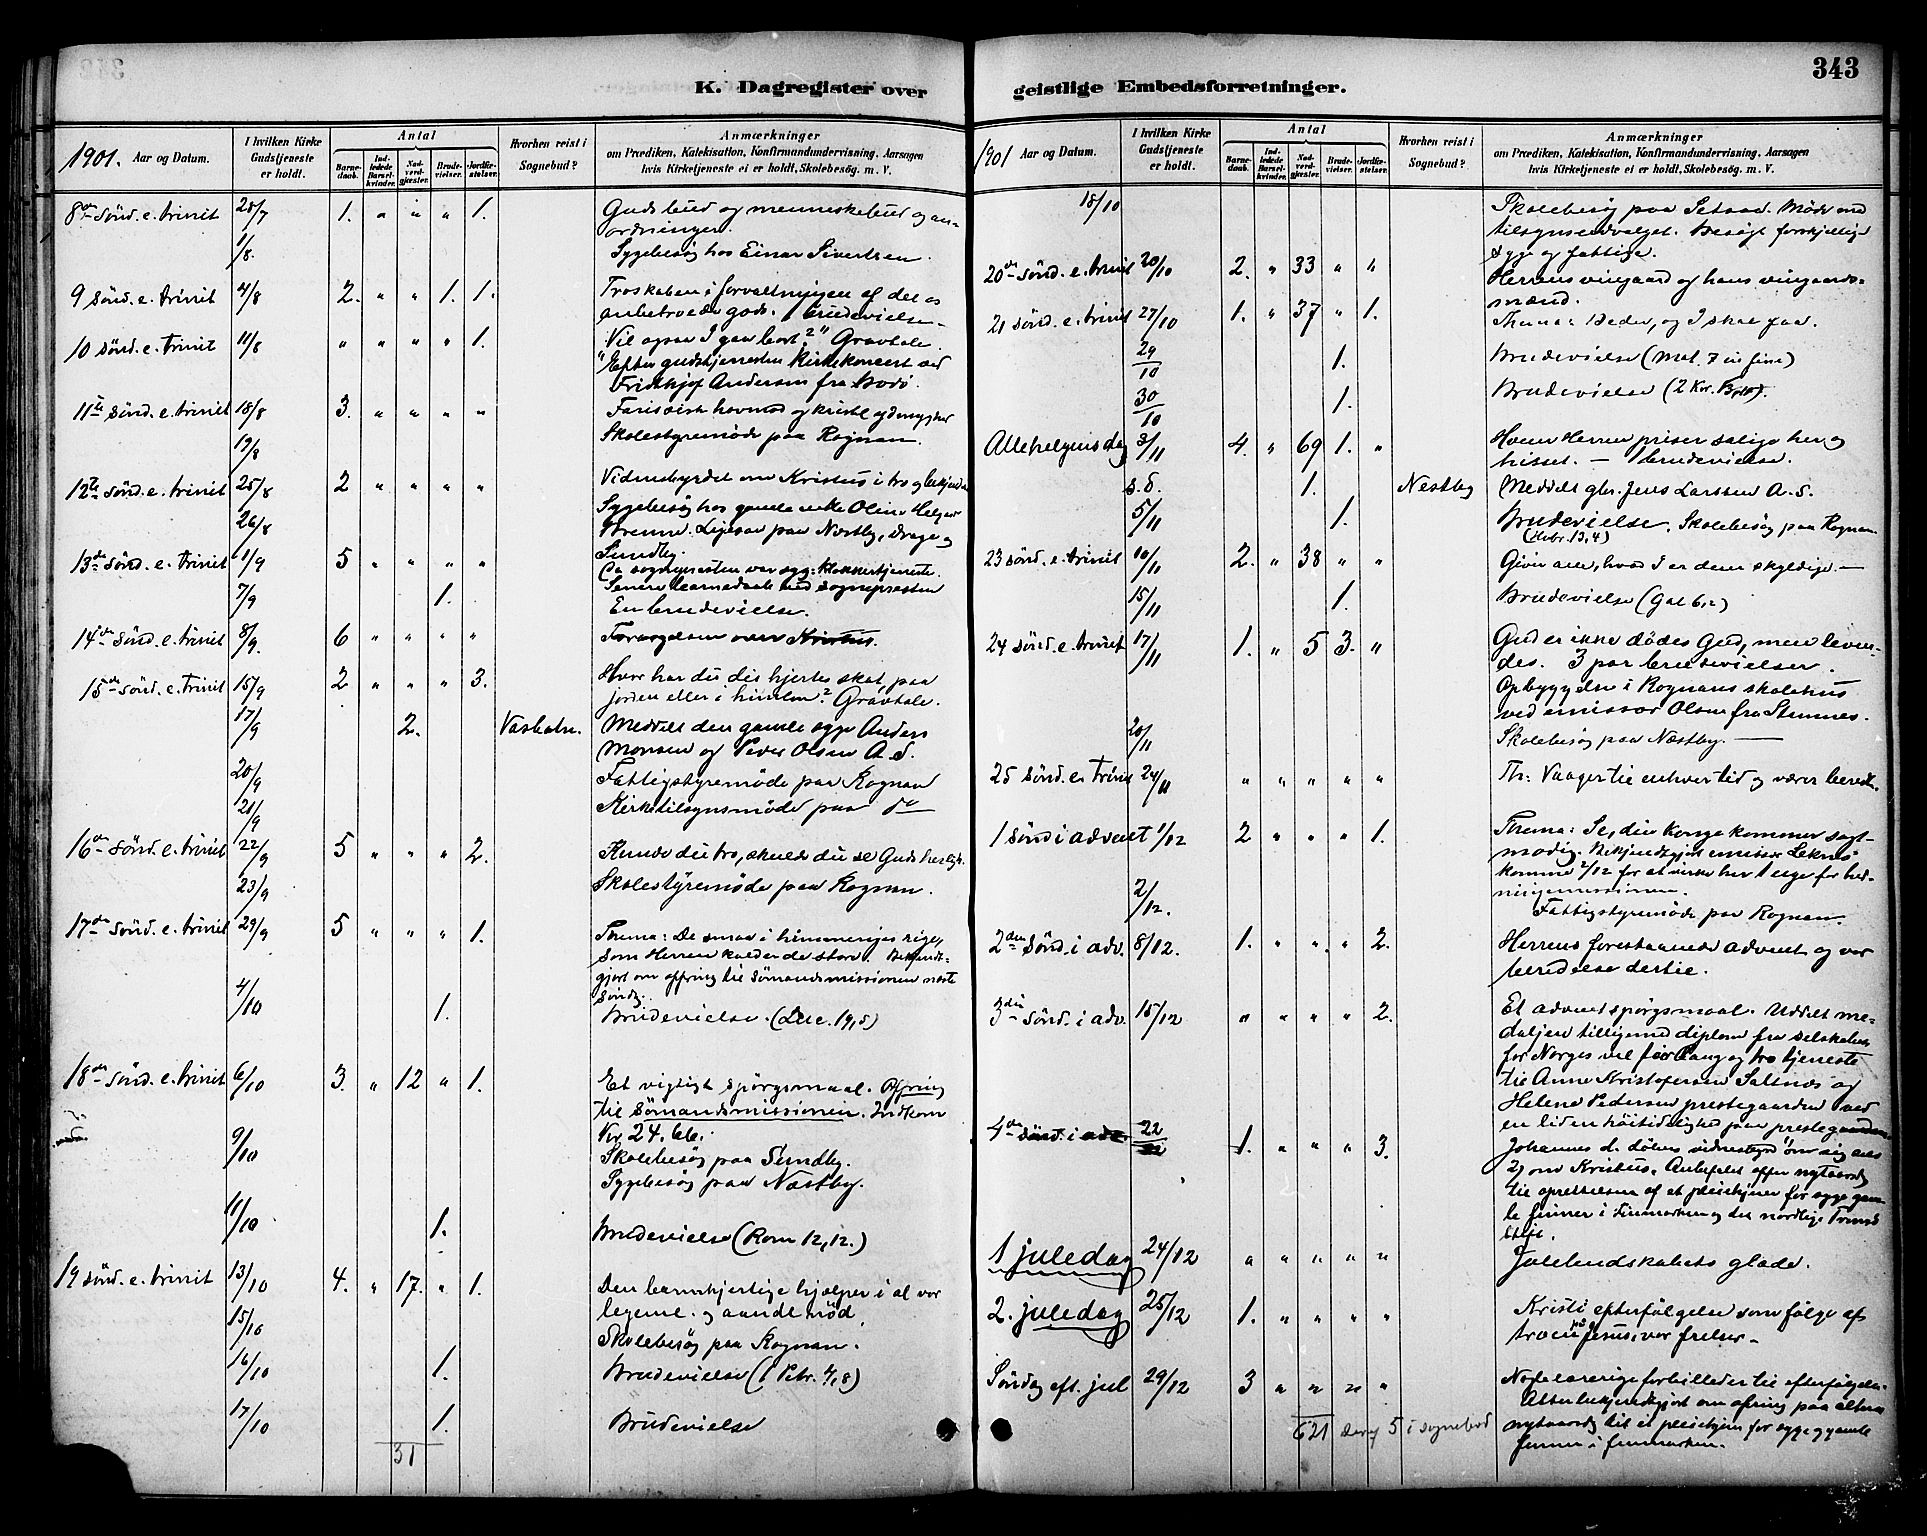 343
K. Dagregister over
1901. Aar og Datum.
I hvilken Kirke Gudstjeneste er holdt.
Antal
Barnedaab. Indledede Barselkvinder. Nadverdgjester. Brudevielser. Jordfæstelser.
Hvorhen reist i Sognebud?
Anmærkninger
om Prædiken, Katekisation, Konfirmandundervisning, Aarsagen
hvis Kirketjeneste ei er holdt, Skolebesøg. m. V.
8de Sönd. e. trinit 28/7 1. " " " 1. Guds bud og menneskebud og an-
ordninger.
1/8. Sygebesög hos Einar Sivertsen.
9 Sönd. e. trinit 4/8 2. " " 1. 1. Troskaben i forvaltningen af det os
anbetroede gods. 1 brudevielse.
10 Sönd. e. trinit 11/8 " " " " 1. Vil ogsaa I gaa bort?" Gravtale.
"Efter gudstjenesten kirkekoncert ved
Fridthjof Andersen fra Bodö.
11te Sönd. e. trinit 18/8 3. " " " " Farisæisk hovmod og kristel. ydmyghed
19/8 Skolestyremöde paa Rognan.
12te Sönd. e. trinit 25/8 2 " " " " Vidnesbyrdet om Kristus i tro og bekjend
26/8 Sygebesög hos gamle enke Oline
Ligesaa paa Næstby, Drage og
Sundby.
13de Sönd. e. trinit 1/9 5 " " " " Da sognepresten var syg: klokkertjeneste.
Senere barnedaab ved sognepresten
7/9 1. En brudevielse.
14de Sönd. e. trinit 8/9. 6 " " " " Forargelsen over Kristus.
15de Sönd. e. trinit 15/9 2 " " " 3. Hvor har du dit hjertes skat, paa
jorden eller i himlen? Gravtale.
17/9 2. Meddelt den gamle syge Anders
Monsen og Peder Olsen A. S.
20/9 Fattigstyremöde paa Rognan
21/9 Kirketilsynsmöde paa do
16de Sönd. e. trinit 22/9 5 " " " 2. Kunde du tro, skulde du se Guds herligh.
23/9 Skolestyremöde paa Rognan.
17de Sönd. e. trinit 29/9 5 " " " 1. Thema: De smaa i himmeriges rige,
som Herren kalder de store. Bekjendt-
gjort om ofring til sömandsmissionen næste
söndag.
4/10 1. Brudevielse. (Luc. 19,5)
18de Sönd. e. trinit 6/10 3. " 12 " 1. Et vigtigt spörgsmaal. Ofring
til Sömandsmissionen. Indkom
Kr. 24.66.
9/10 Skolebesög paa Sundby.
Sygebesög paa Næstby.
11/10 1. Brudevielse (Rom 12,12.)
19 Sönd. e. trinit 13/10 4. " 17. " 1. Den barmhjertige hjælper i al vor
legems- og aands nöd.
15/10 Skolebesög paa Rognan.
16/10 1. Brudevielse (1 Petr. 4,8)
17/10 1. Brudevielse
31
geistlige Embedsforretninger.
1901 Aar og Datum.
I hvilken Kirke Gudstjeneste er holdt.
Antal
Barnedaab. Indledede Barselkvinder. Nadverdgjester. Brudevielser. Jordfæstelser.
Hvorhen reist i Sognebud?
Anmærkninger
om Prædiken, Katekisation, Konfirmandundervisning, Aarsagen
hvis Kirketjeneste ei er holdt, Skolebesøg. m. V.
18/10 Skolebesög paa Setsaa. Möde med
tilsynsudvalget. Besögt forskjellige
syge og fattige.
20de Sönd. e. trinit 20/10 2. " 33 " " Herrens vingaard og hans vingaards-
mænd.
21 Sönd. e. trinit 27/10 1. " 37 " 1. Thema: Beder, og I skal faa.
29/10 1. Brudevielse (Mat. 7 in fine)
30/10 1. Brudevielse (2 Kor. 13,11).
Allehelgensdag 3/11 4. " 69 1. " Hvem Herren priser salige her og
hisset. — 1 brudevielse.
s. d. 1. Nestby Meddelt gbr. Jens Larssen A. S.
5/11 1. Brudevielse. Skolebesög paa Rognan
(Hebr. 13,4)
23 Sönd. e. trinit 10/11 2. " 38 " " Giver alle, hvad I er dem skyldige. —
15/11 1. Brudevielse (Gal 6,2)
24 Sönd. e. trinit 17/11 1. " 5 3. " Gud er ikke dödes Gud, men leven-
des. 3 par brudevielser.
Opbyggelse i Rognans skolehus
ved emissær Olsen fra Stemnes.
20/11 Skolebesög paa Næstby. —
25 Sönd. e. trinit 24/11 " " " " " Th: Vaager til enhver tid og værer beredt.
1 Sönd i advent 1/12 2 " " " 1. Thema: Se, din konge kommer sagt-
modig. Bekjendtgjort emissær Leknes'
komme 2/12 for at virke her 1 uge for hed-
ningemissionen.
2/12. Fattigstyremöde paa Rognan.
2den Sönd. i adv. 8/12. 1. " " " 2. Herrens forestaaende advent og vor
beredelse dertil.
3die Sönd. i adv. 15/12 " " " " 2. Et adventspörgsmaal. Uddelt me-
daljen tilligemed diplom fra selskabet
for Norges vel for lang og tro tjeneste
til Anne Kristofersen Saltnes og
Helene Pedersen prestegaarden ved
en liden höitidelighed paa prestegaarden
4de Sönd. i adv. 22/12 1. " " " 3. Johannes d. döbers vidnesbyrd 1) om sig selv
2) om Kristus. Anbefalet offer nytaarsdag
til oprettelsen af et pleiehjem for syge gam-
le finner i Finmarken og det nordlige Tromsö
stift.
1 juledag 24/12 " " " " " Julebudskabets glæde.
2. juledag 25/12 1. " " " " Kristi efterfölgelse som fölge af
troen paa Jesus, vor frelser.
Söndag eft. jul 29/12 3 " " " " Nogle lærerige forbilleder til efterfölgelse.
Atter bekjendtgjort om ofring paa alteret
nytaarsdag til et pleiehjem for syge gamle
finner i finmarken.
621 deraf 5 i sognebud